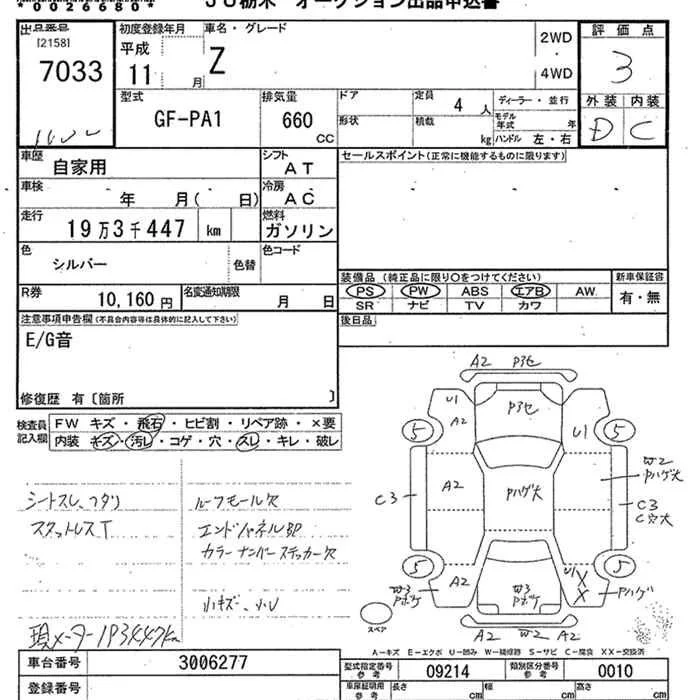 *0026680*
JU栃木 オークション出品申込書
出品番号
[2158]
7033
初度登録年月
平成
11 月
車名・グレード
Z
2WD
・
4WD
評価点
3
型式
GF-PA1
排気量
660
CC
ドア
形状
定員
4 人
積載
kg
ディーラー・並行
モデル年式 年
ハンドル 左・右
外装 内装
D C
車歴
自家用
シフト
AT
セールスポイント(正常に機能するものに限ります)
車検
年 月( 日)
冷房
AC
走行
19万3千447 km
燃料
ガソリン
色
シルバー
色替
色コード
装備品 (純正品に限り○をつけてください)
新車保証書
PS PW ABS エアB AW
SR ナビ TV カワ
有・無
R券
10,160円
名変通知期限
月 日
後日品
注意事項申告欄(不具合内容等は具体的に記入して下さい)
E/G音
修復歴 有〔箇所 〕
検査員記入欄
FW キズ・飛石・ヒビ割・リペア跡・×要
内装 キズ・汚レ・コゲ・穴・スレ・キレ・破レ
シートスレ、
スタットレスT
ルーフモール欠
カラーナンバーステッカー欠
小キズ、小U
現メーター193447km
A2
U1
A2
U1
5
5
A2
Pハゲ大
W2
Pハゲ大
C3
C3
C穴大
5
5
A2
W3
W3
U1
X
X
Pハゲ
A2
A2
スペア
A-キズ E-エクボ U-凹み W-補修跡 S-サビ C-腐食 XX-交換済
車台番号
3006277
型式指定番号
参考
09214
類別区分番号
参考
0010
登録番号
車庫証明用
参考
長さ
cm
幅
cm
高さ
cm